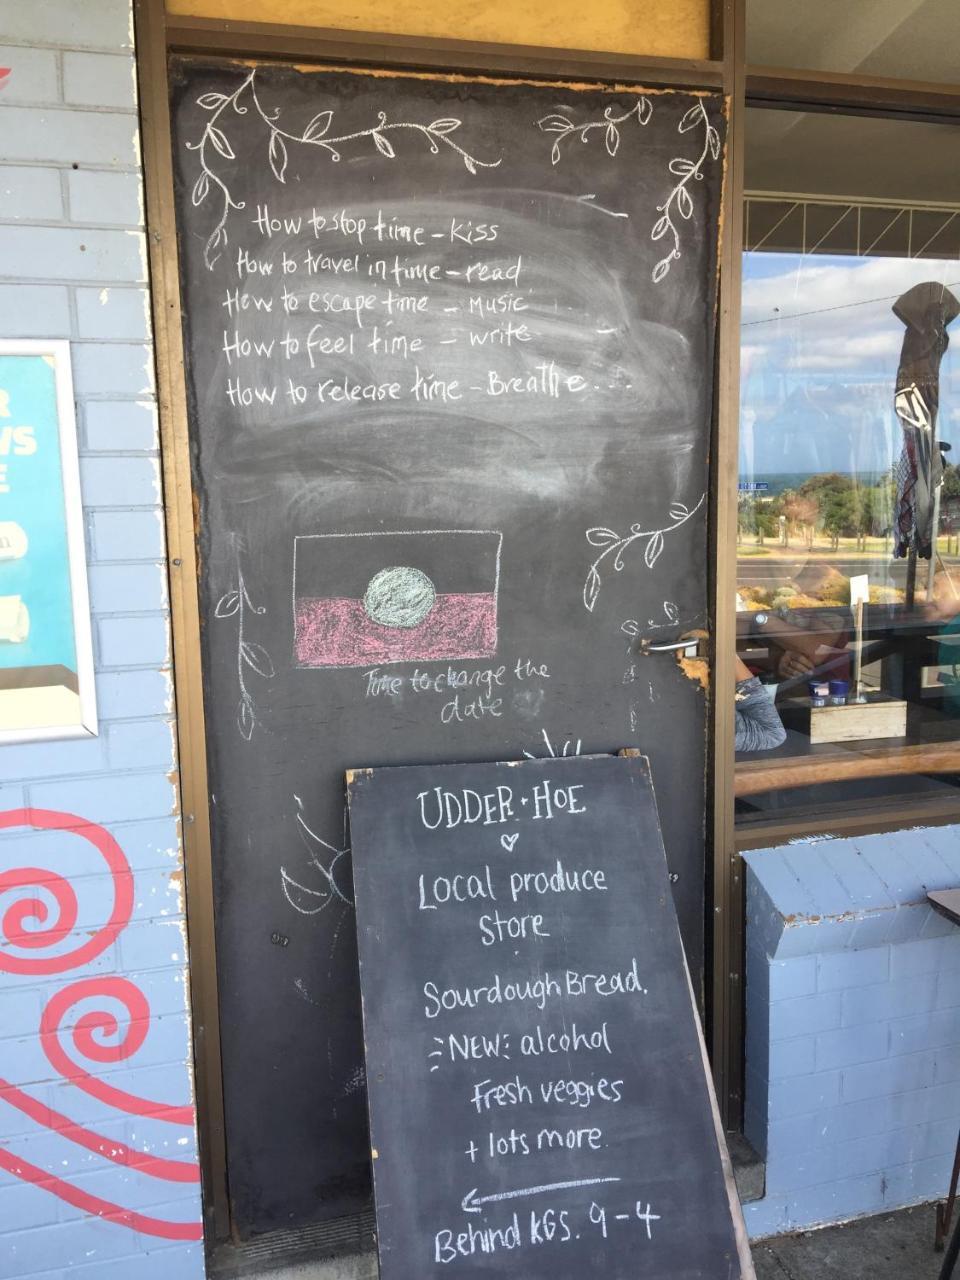 How to stop time - Kiss
How to travel in time - read
How to escape time - Music
How to feel time - write
How to release time - Breathe...
Time to change the
date
UDDER + HOE
Local produce
store
Sourdough Bread.
NEW alcohol
Fresh veggies
+ lots more.
Behind KGS. 9-4